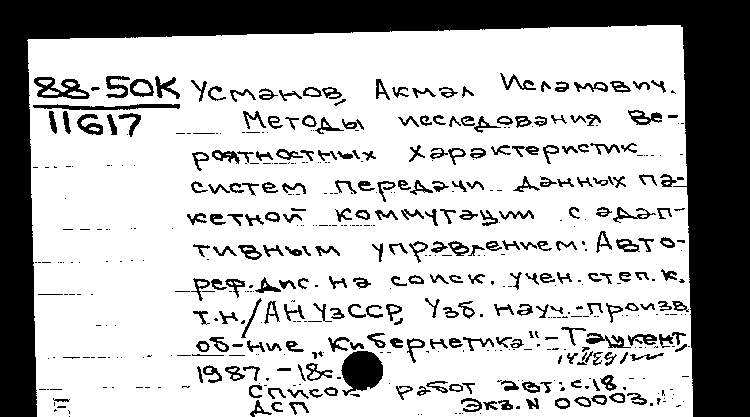 88-50К Усманов, Акмал Исламович.
11617 Методы исследования ве-
роятностных характеристик
систем передачи данных па-
кетной коммутации с адап-
тивным управлением: Авто-
реф.дис. на соиск. учен.степ.к.
т.н./АН УзССР, Узб. науч.-произв.
об-ние „Кибернетика".-Ташкент,
1987. - 18с.
Список работ авт.: с.18.
ДСП Экз. N 00003.